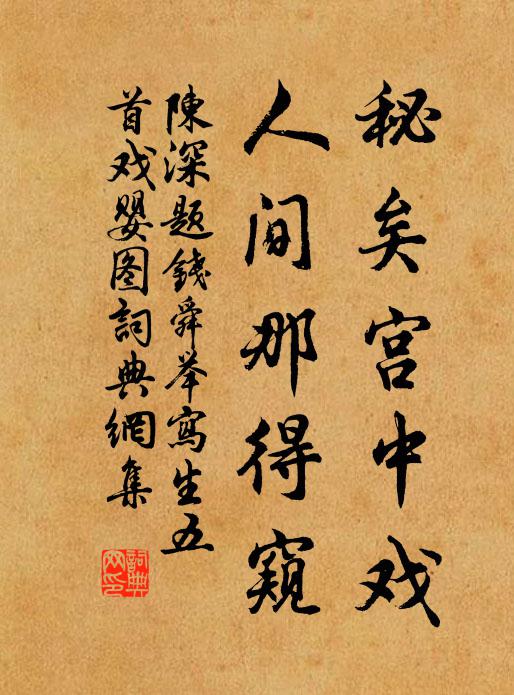 秘矣宫中戏
人间那得窥
陳深題錢舜举寫生五
首戏婴图詞典網集
詞典網印